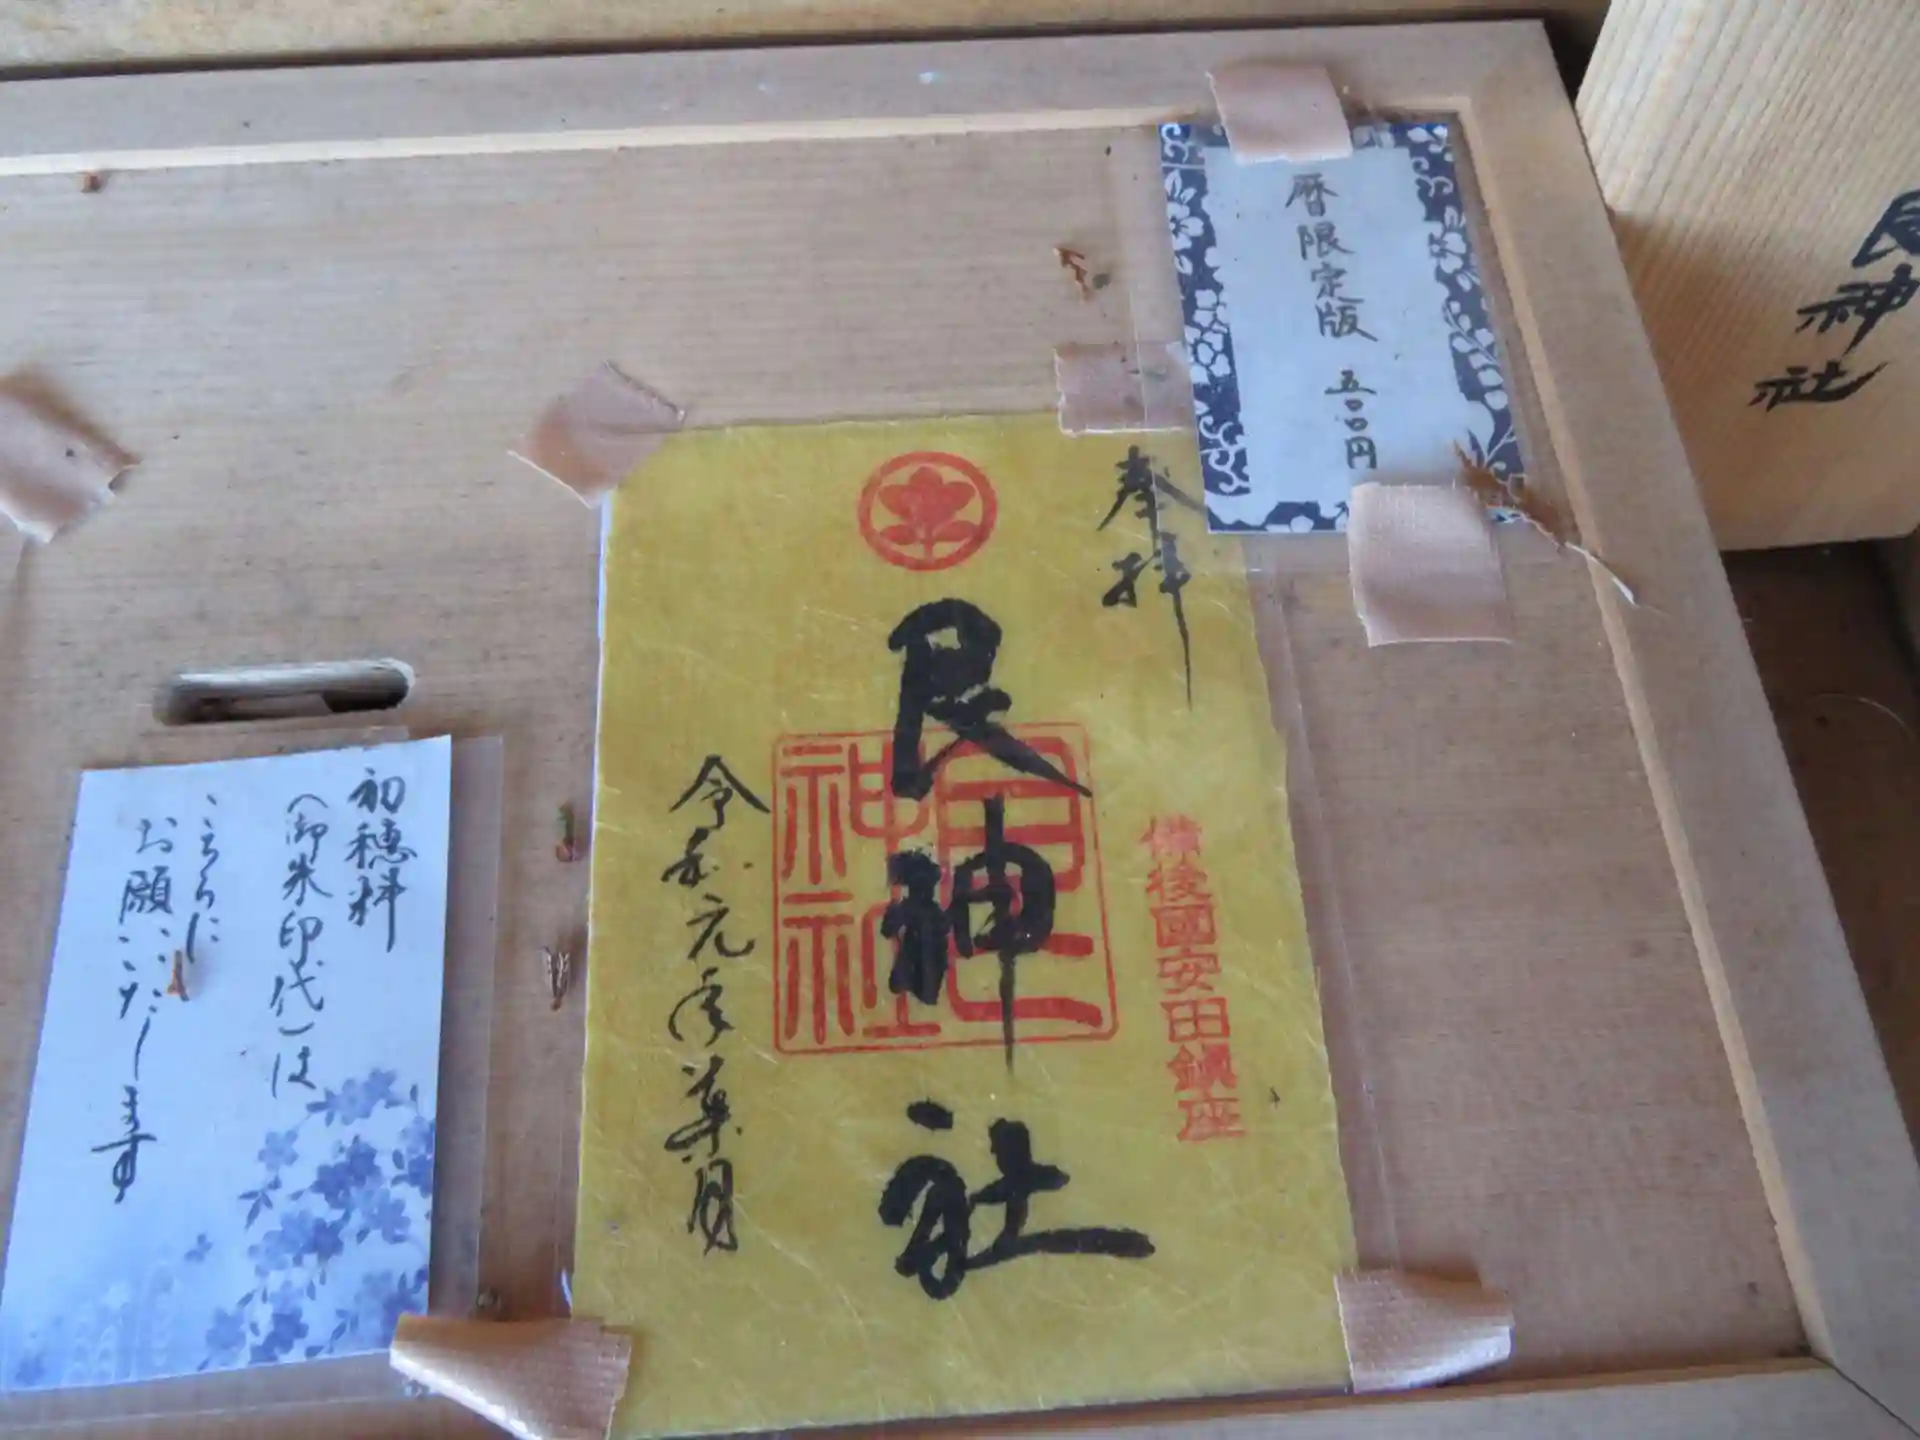 暦限定版 五〇〇円
艮神社
奉拝
備後國安田鎮座
艮神社
艮神社
令和元年葉月
初穂料
(御朱印代)は
こちらに
お願いいたします